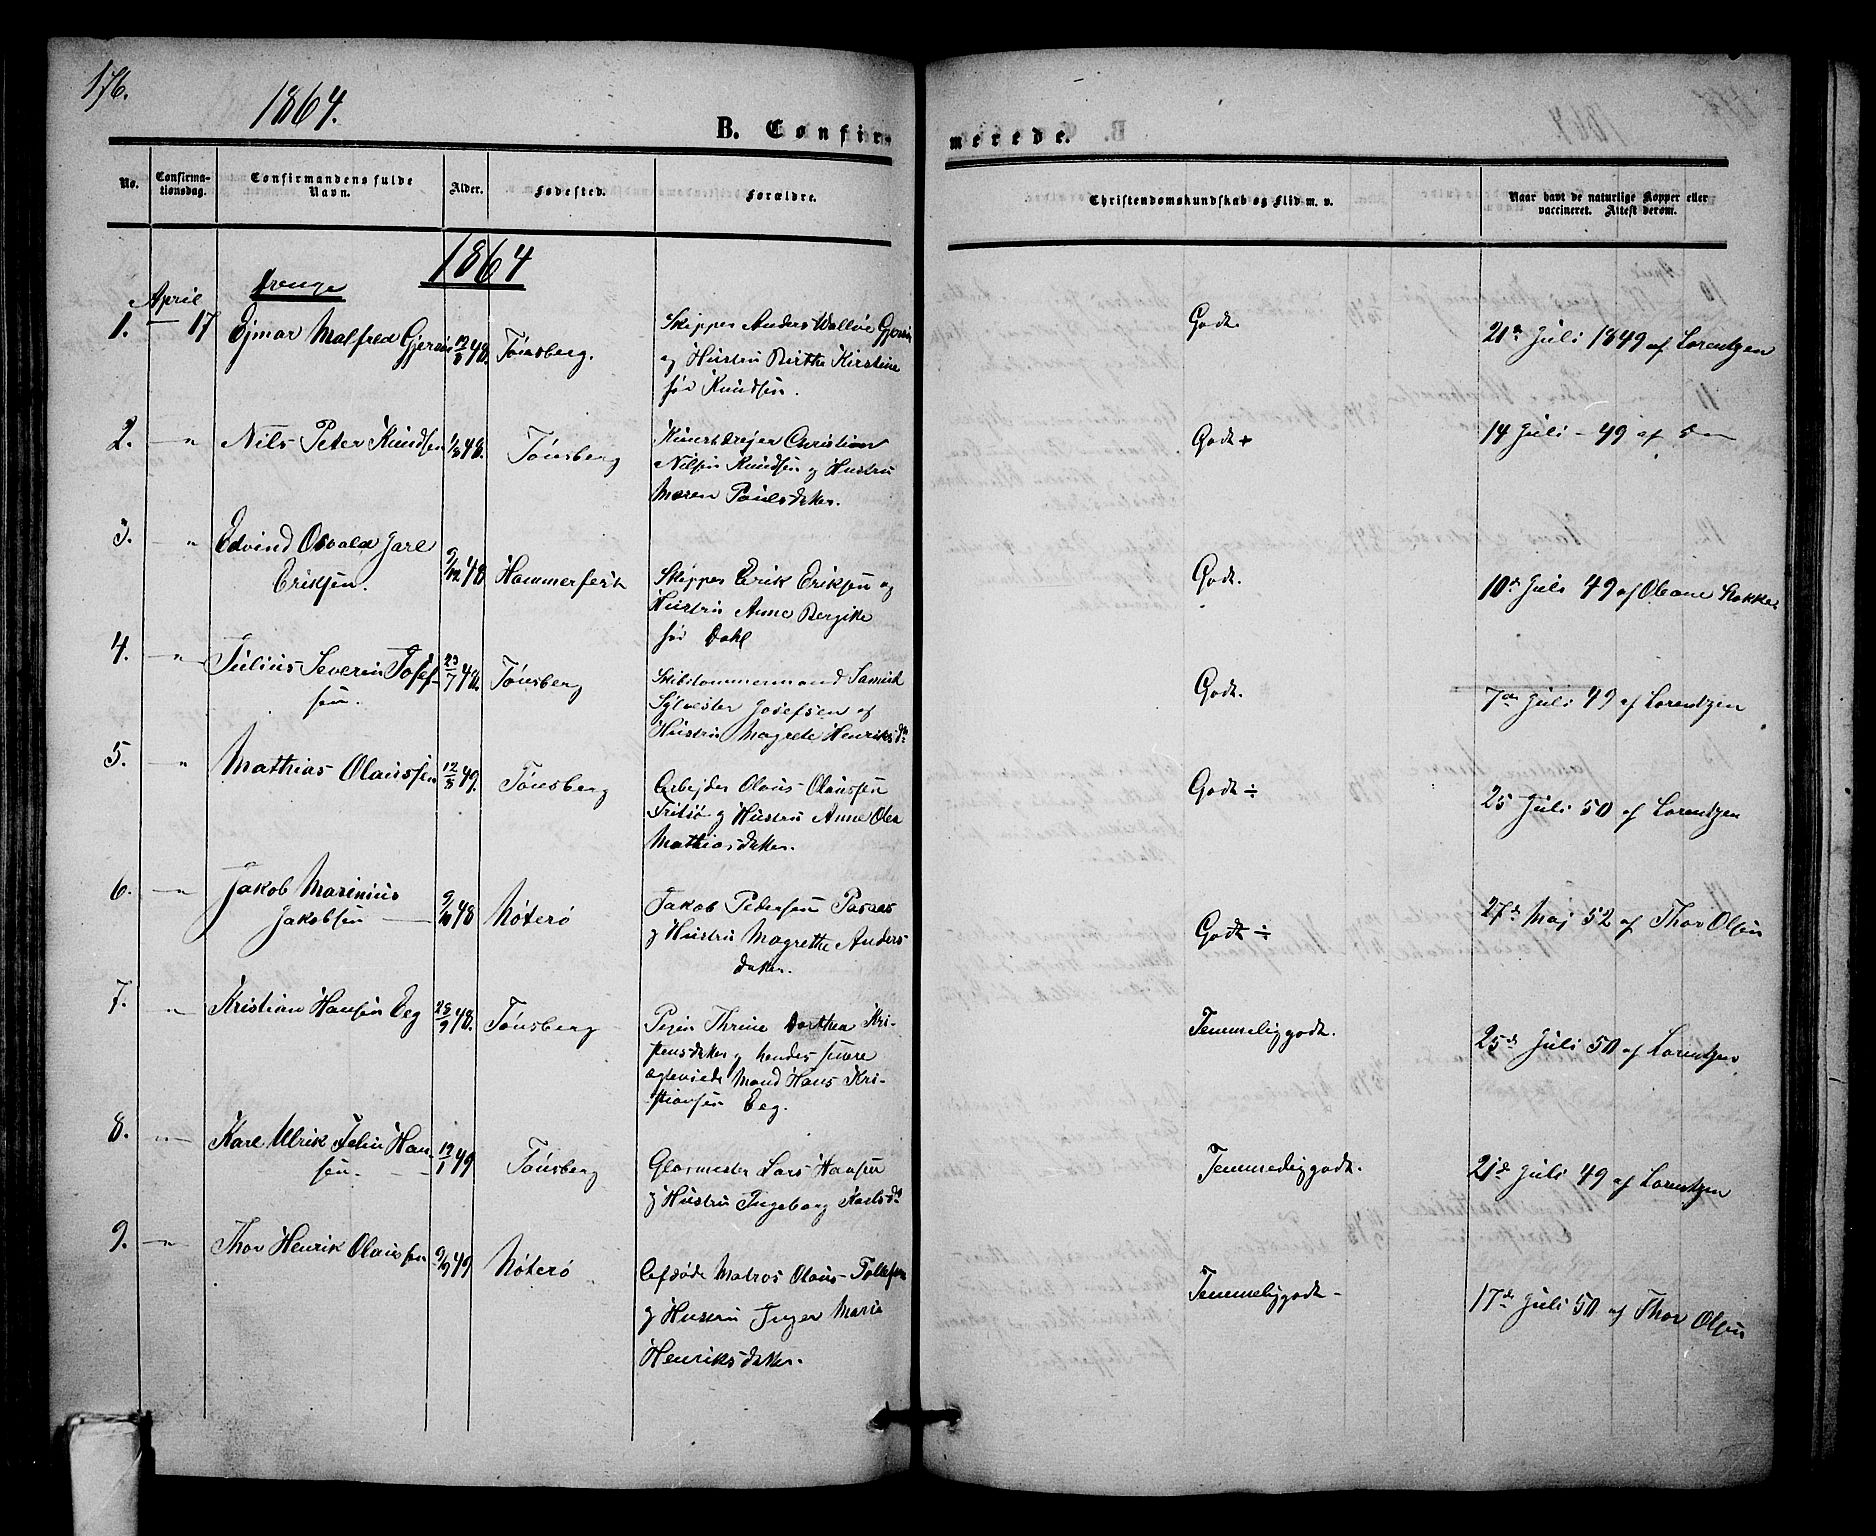 176.
1864.
B. Confir-
merede.
No.
Confirma-
tionsdag.
Confirmandens fulde
Navn.
Alder.
Fødested.
Forældre.
Christendomskundskab og Flid m. v.
Naar havt de naturlige Kopper eller
vaccineret. Attest derom.
1864
Drenge
April
1. — 17
Ejmar Malfred Gjersøe
48.
Tønsberg.
Skipper Anders Walløe Gjersøe
og Hustru Birthe Kirstine
før Knudsen.
Godt.
21de Juli 1849 af Lorentzen
2. — "
Nils Peter Knudsen
48.
Tønsberg
Kunstdrejer Christian
Nilsen Knudsen og Hustru
Maren Paulsdatter.
Godt +
14 Juli - 49 af
3. — "
Edvind Osvald Jarl
Eriksen.
9/12 48
Hammerfest
Skipper Erik Eriksen og
Hustru Anne Bergithe
før Dahl
Godt.
10de Juli 49 af Oleane
4. — "
Julius Severin Josef-
sen.
23/7 48.
Tønsberg
Skibstømmermand
Sylvester Josefsen og
Hustru Magrete Henriksdtr
Godt.
7de Juli 49 af Lorentzen
5. "
Mathias Olaussen
12/3 49.
Tønsberg
Arbejder Olaus Olaussen
og Hustru Anne Olea
Mathiasdatter.
Godt ÷
25 Juli 50 af Lorentzen
6. — "
Jakob Marinius
Jakobsen
48
Nøterø
Jakob Pedersen
og Hustru Magrethe Anders-
datter.
Godt ÷
27de Maj 52 af Thor Olsen
7. "
Kristian Hansen Eeg
23/9 48.
Tønsberg
Pigen Thrine Dorthea Kri-
stensdatter og hendes senere
ægteviede Mand Hans Kri-
stiansen Eeg.
Temmelig godt.
25de Juli 50 af Lorentzen
8. — " —
Karl Ulrik Felix Han-
sen.
12/1 49
Tønsberg
Glasmester Lars Hansen
og Hustru Ingeborg Karlsdtr
Temmelig godt.
21de Juli 49 af Lorentzen
9. — " —
Thor Henrik Olaussen
9/9 49
Nøterø
Afdøde Matros Olaus Tollefsen
og Hustru Inger Maria
Henriksdatter.
Temmelig godt -
17de Juli 50 af Thor Olsen